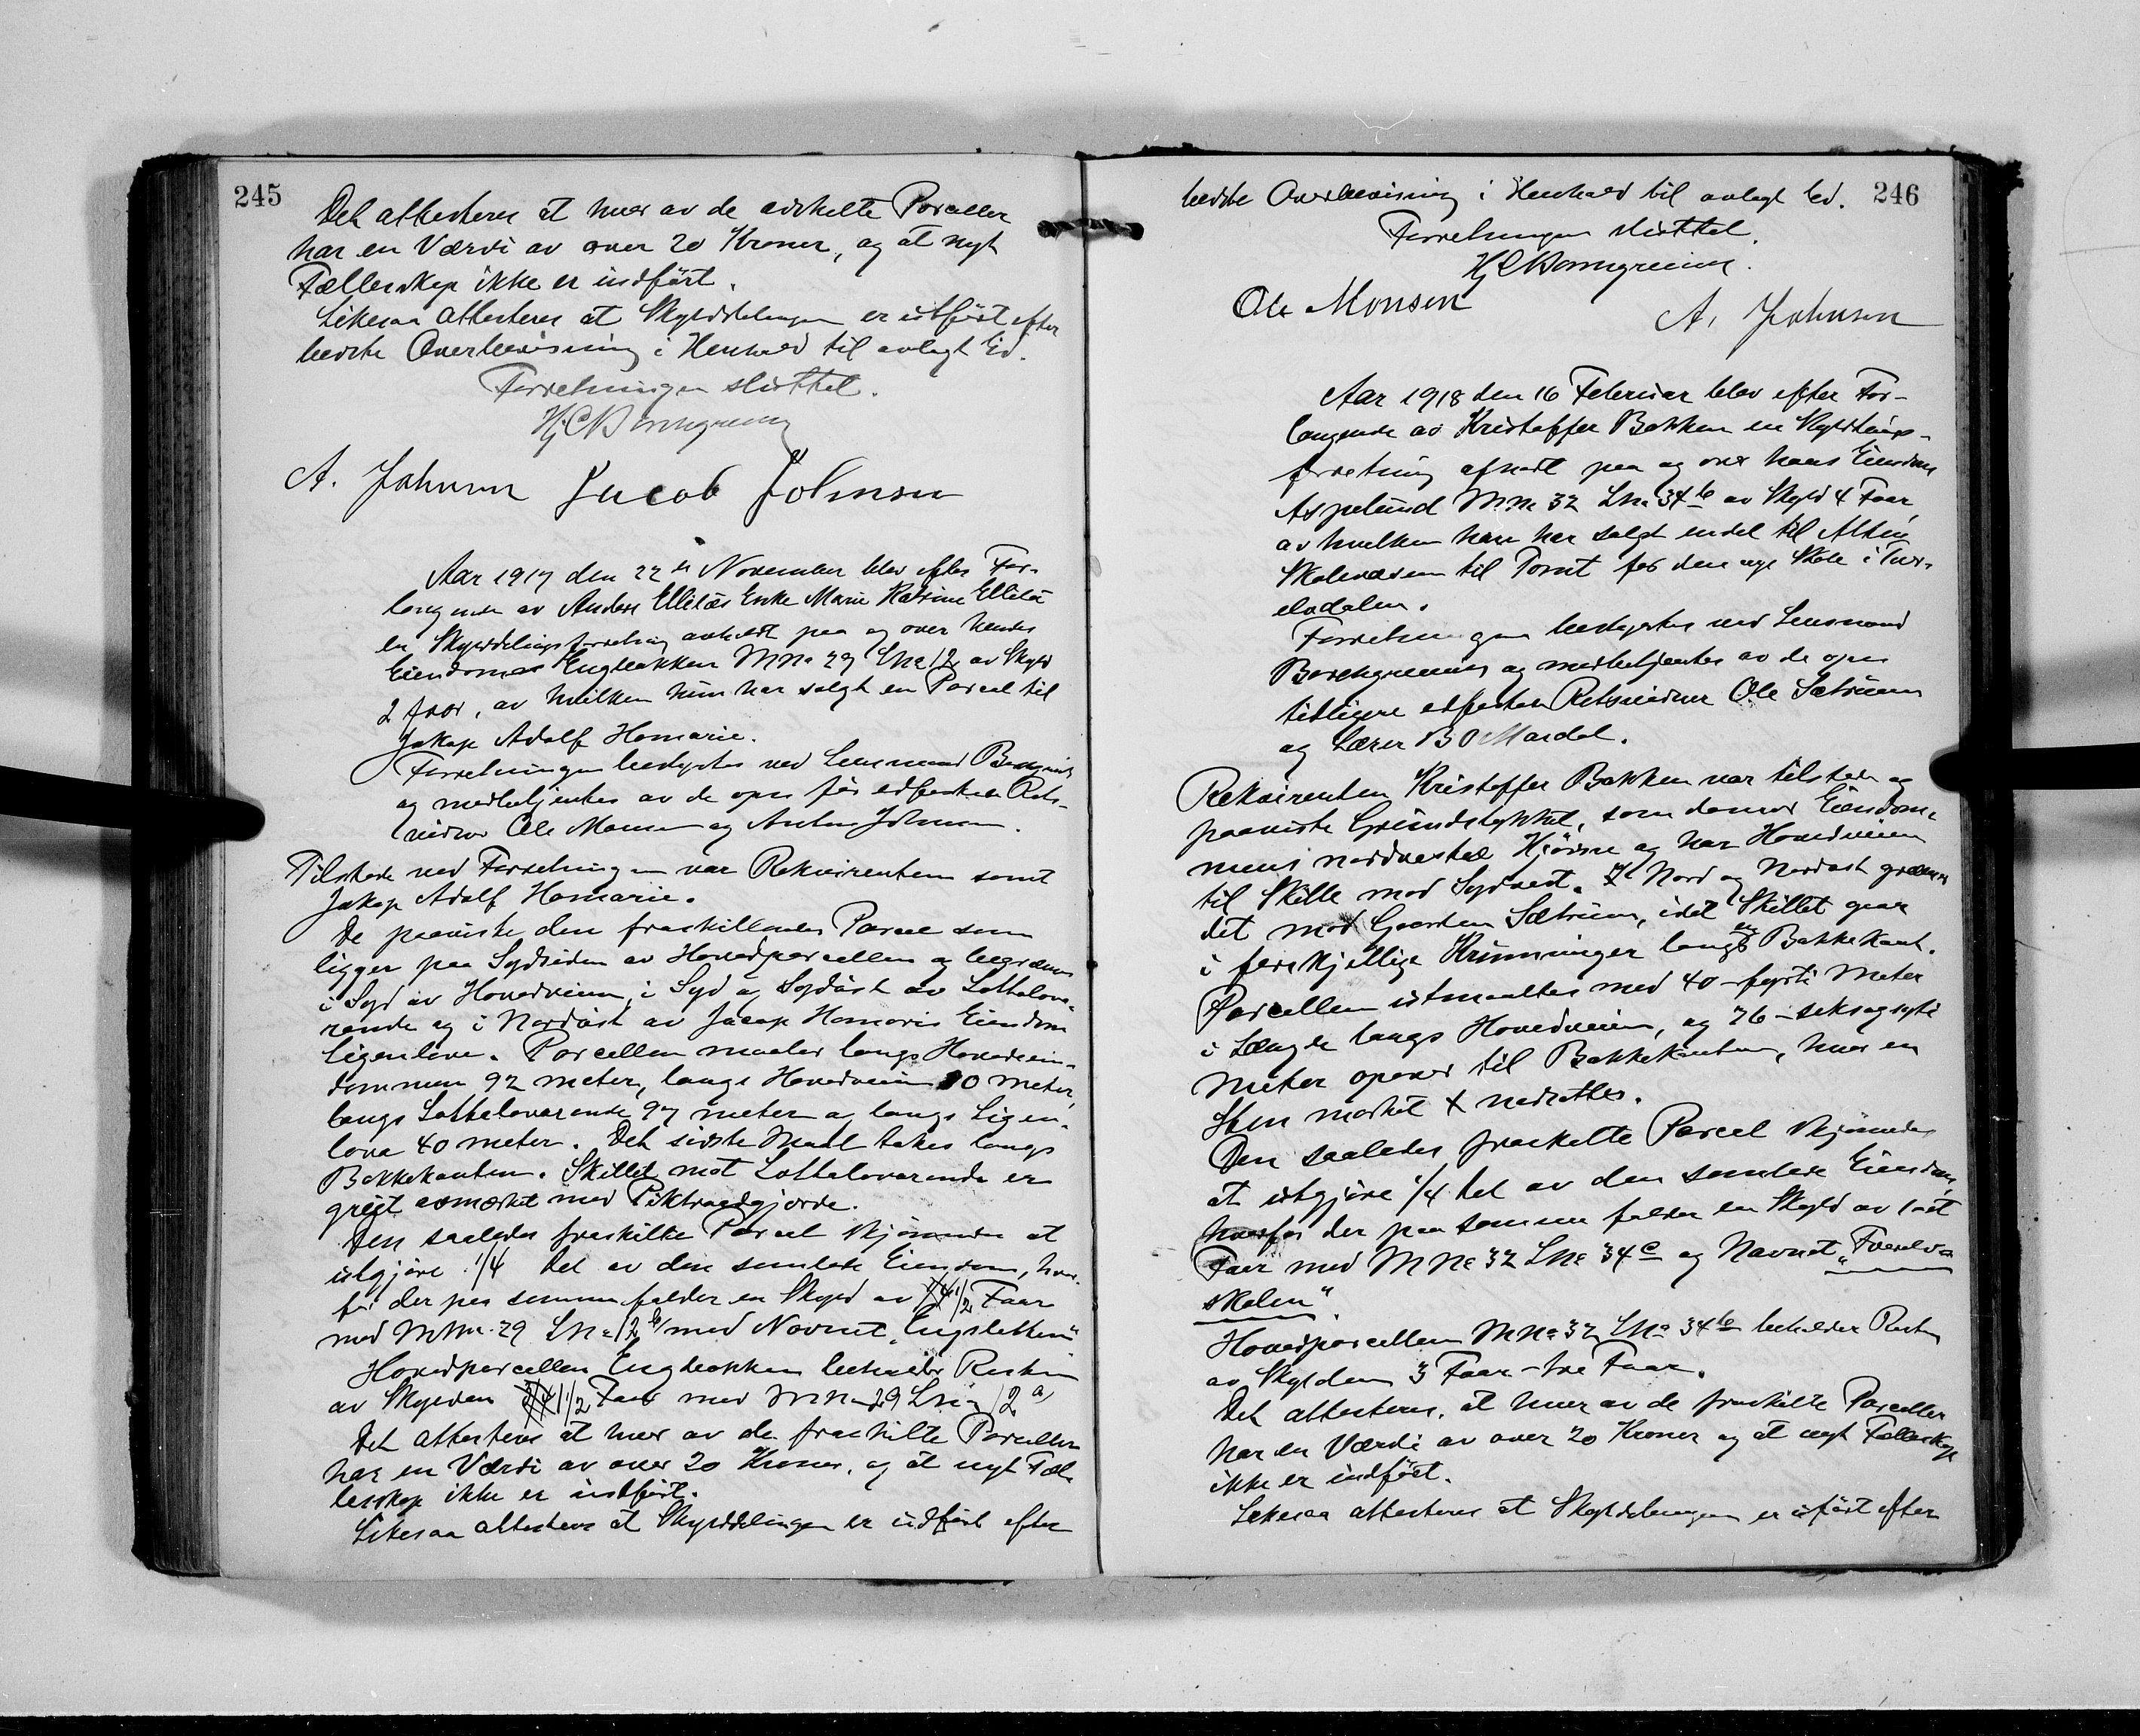 245
Det attesteres at hver av de avskelte Parceller
har en Værdi av over 20 Kroner, og at nyt
Fællerskap ikke er indført.
Likesaa attesteres at Skylddelingen er utført efter
bedste Overbevisning i Henhold til avlagt Ed.
Forretningen sluttet.
A. Johnsen Jacob Johnsen
Aar 1917 den 22de November blev efter For-
langende av Anders Ellilæs Enke Marie Katrine Ellilä
en Skylddelingsforretning avholdt paa og over hendes
Eiendomer Engbakken MNo 29 LNo 12 av Skyld
2 Øver, av hvilken hun har solgt en Parcel til
Jakop Adolf Homarie.
Forretningen bestyrtes ved Lensmand
og medbetjentes av de open før edfestede Rets-
vidner Ole Monsen og Anton Johnsen.
Tilstede ved Forretningen var Rekvirenten samt
Jakop Adolf Homarie.
De paaviste den fraskillende Parcel som
ligger paa Sydsiden av Hovedparcellen og begrænses
i Syd av Hovedveien, i Syd og Sydøst av Lottelova-
rande og i Nordøst av Jacop Homaris Eiendom
Ligenlova. Parcellen maaler langs Hovedeien-
dommen 92 meter, langs Hovedveien 80 meter,
langs Lottelovarande 97 meter og langs Ligen-
lova 40 meter. Det sidste Maal takes langs
Bakkekanten. Skillet mot Lottelovarande er
greit avmærket med Piktraadgjærde.
Den saaledes fraskilte Parcel skjønnedes at
utgjøre 1/4 Del av den samlede Eiendom, hvor-
for der paa samme falder en Skyld av 1/2 Øver
med MNo 29 LNo 12 b med Navnet "Engsletten"
Hovedparcellen Engbakken beholder Resten
av Skylden 1 1/2 Øver med MNo 29 LNo 12 a
Det attesteres at hver av de fraskilte Parceller
har en Værdi av over 20 Kroner, og at nyt Fæl-
lerskap ikke er indført.
Likesaa attesteres at Skylddelingen er utført efter
246
bedste Overbevisning i Henhold til avlagt Ed.
Forretningen sluttet.
Ole Monsen
A. Johnsen
Aar 1918 den 16 Februar blev efter For-
langende av Kristoffer Bakken en Skyldelings-
forretning afholdt paa og over hans Eiendom
Aspelund MNo 32 LNo 34 b av Skyld 4 Øver,
av hvilken han har solgt endel til Alten
Skolevæsen til Tomt for den nye Skole i Tver-
elvdalen.
Forretningen bestyrtes ved Lensmand
og medbetjentes av de open
tidligere edfestede Retsvidner Ole Sætrum
og Lærer B O Mardal.
Rekvirenten Kristoffer Bakken var tilstede og
paaviste Grundstykket, som danner Eiendom-
mens nordvestre Hjørne og har Hovedveien
til Skille mod Sydvest. I Nord og Nordøst grænser
det mod Gaarden Sætrum, idet Skillet gaar
i forskjellige Krumninger langs en Bakkekant.
Parcellen utmaaltes med 40 - fyrti Meter
i Længde langs Hovedveien, og 76 - seksogsyti
Meter opover til Bakkekanten, hvor en
Sten merket X nedsattes.
Den saaledes fraskilte Parcel skjønnedes
at utgjøre 1/4 Del av den samlede Eiendom,
hvorfor der paa samme falder en Skyld av 1 - et
Øver med MNo 32 LNo 34 c og Navnet "Tverelv-
skolen".
Hovedparcellen MNo 32 LNo 34 b beholder Resten
av Skylden 3 Øver - tre Øver.
Det attesteres, at hver av de fraskilte Parceller
har en Værdi av over 20 Kroner og at nyt Fællerskap
ikke er indført.
Likesaa attesteres at Skylddelingen er utført efter